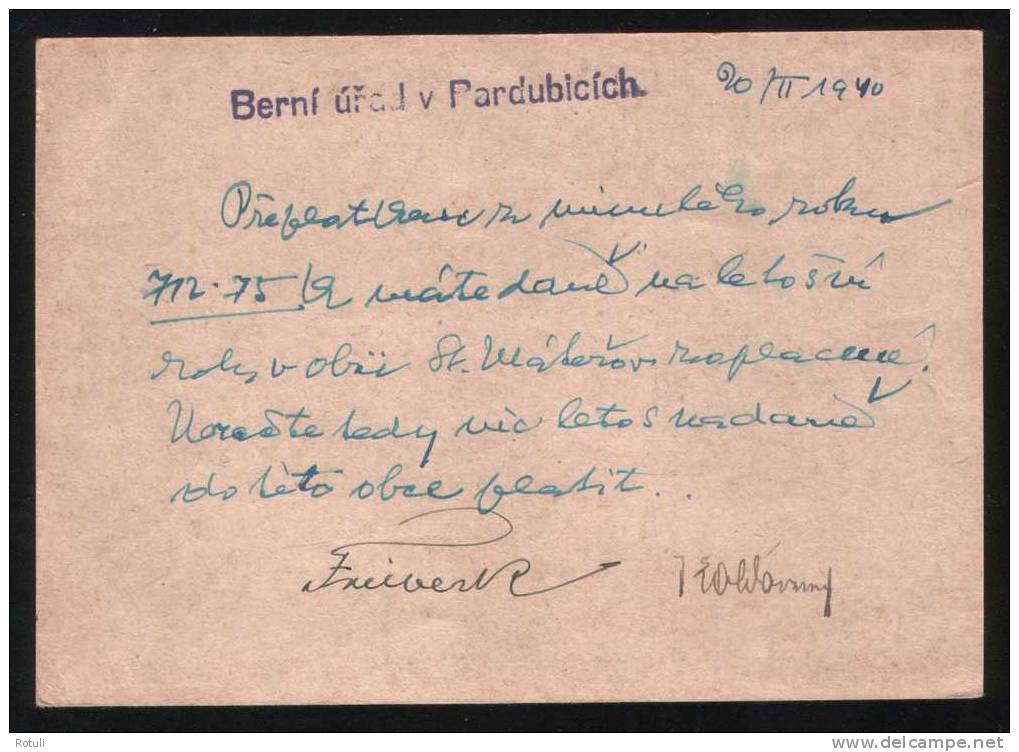 Berní úřad v Pardubicích. 20/II 1940
Přeplatkem z minulého roku
712.75 K máte daně na letošní
rok v obci St. Máteřov zaplacené.
Neračte tedy nic letos na daně
do této obce platit..
Rotuli
delcampe.net